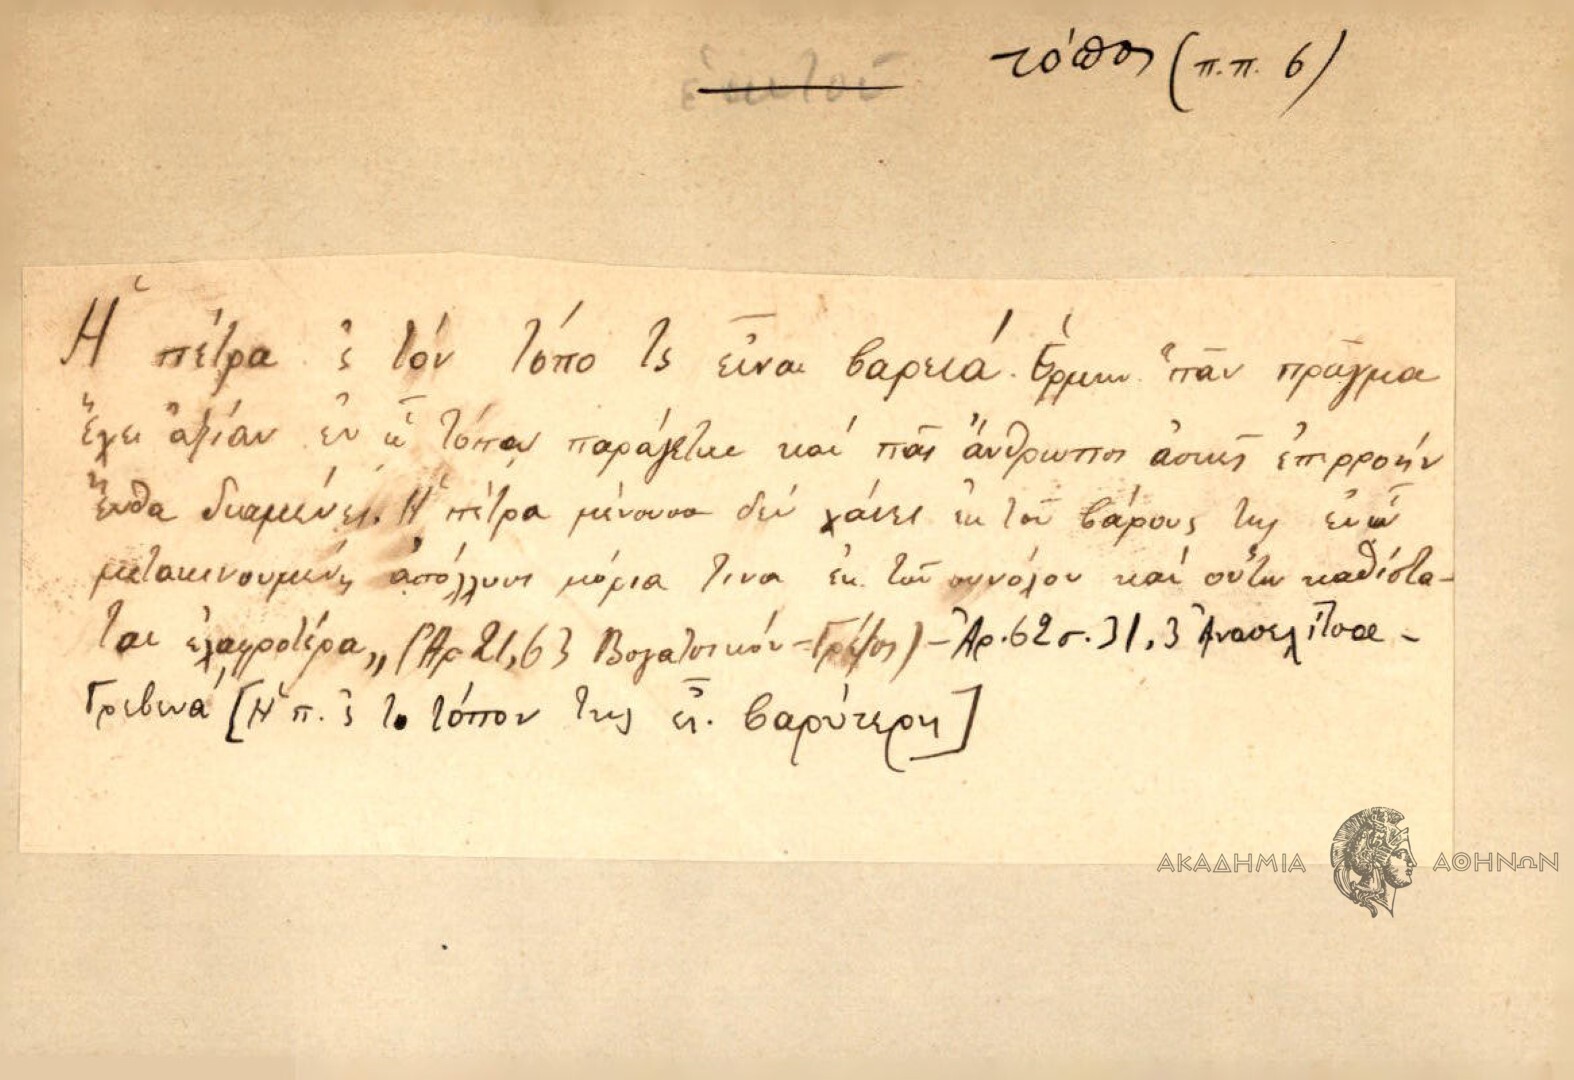 τόπος (π.π. 6)
Ἡ πέτρα ς τὸν τόπο τς εἶναι βαρειά. Ἑρμην. "πᾶν πρᾶγμα
ἔχει ἀξίαν ἐν ᾧ τόπῳ παράγεται καὶ πᾶς ἄνθρωπος ἀσκεῖ ἐπιρροήν
ἔνθα διαμένει. Ἡ πέτρα μένουσα δέν χάνει ἐκ τοῦ βάρους της ἐνῶ
μετακινουμένη ἀπόλλυσι μόρια τινα ἐκ τοῦ συνόλου καί οὕτω καθίστα-
ται ἐλαφροτέρα„ (Ἀρ 21, 63 Βογατσικόν - ) - Ἀρ. 62 σ. 31, 3 Ἀνασελίτσαι -
Γρεβενά [Ἡ π. ς το τόπον της εἶ. βαρύτερη]
ΑΚΑΔΗΜΙΑ ΑΘΗΝΩΝ